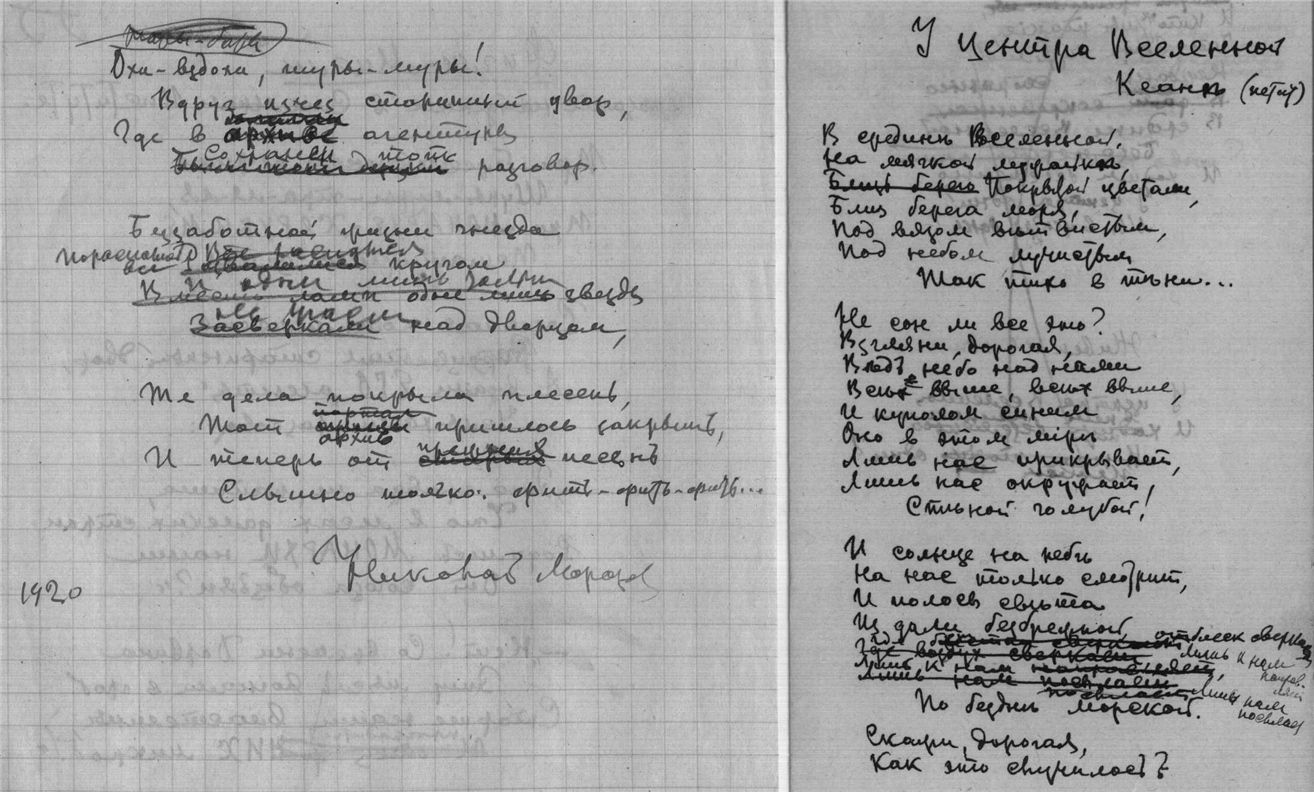 Тары-бары
Охи-вздохи, шуры-муры!
Вдруг исчез старинный двор,
Где в архиве агентуры
Сохранен тот разговор.
Беззаботной жизни гнезда
кругом
звезды
над дворцом,
Те дела покрыла плесень,
Тот архив пришлось закрыть,
И теперь от прежних песен
Слышно только: фить-фить-фить...
Николай Морозов
1920
У центра Вселенной
(петит)
В средине Вселенной,
На мягкой лужайке,
Близь берега Покрытой цветами,
Близ берега моря,
Под вязом ветвистым,
Под небом лучистым
Так тихо в тени...
Не сон ли все это?
Взгляни, дорогая,
Ведь небо над нами
Всех выше, всех выше,
И куполом синим
Оно в этом мiре
Лишь нас прикрывает,
Лишь нас окружает,
Стеной голубой!
И солнце на небе
На нас только смотрит,
И полоса света
Из дали безбрежной,
блеск сверка
Где воздух сверкает Лишь к нам
направ-
ляет
Лишь нам
посылает
По бездне морской.
Скажи, дорогая,
Как это случилось?